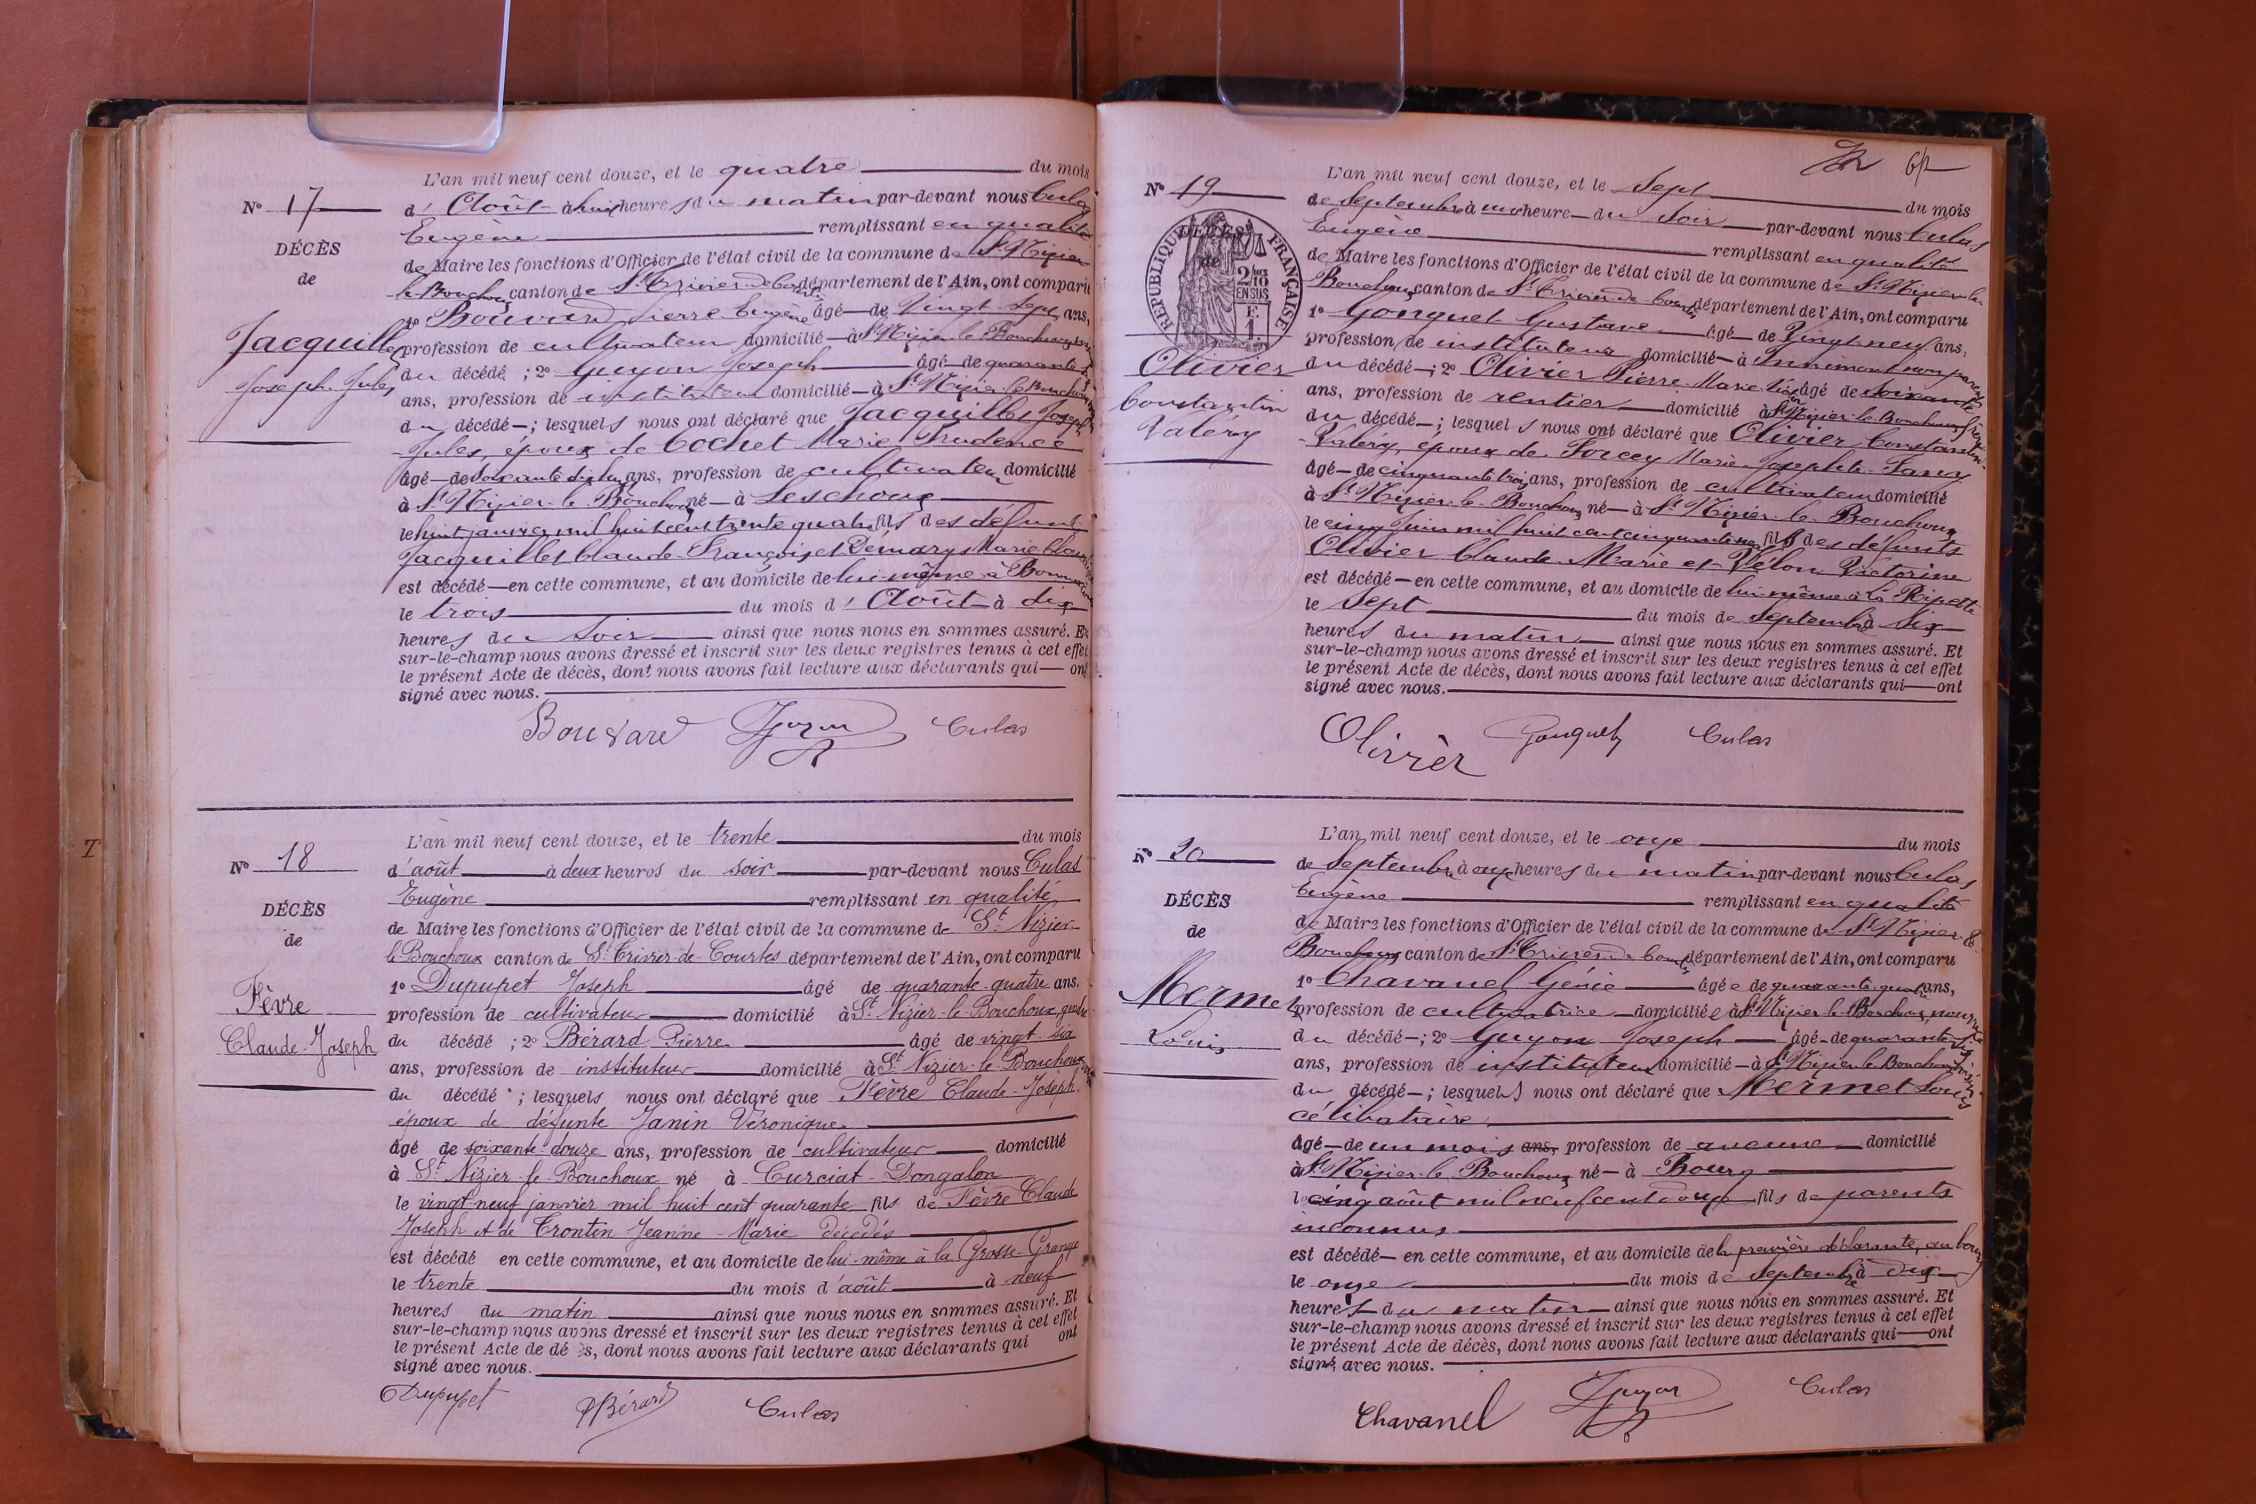 L'an mil neuf cent douze, et le quatre du mois
N° 17
d'Août à huit heures du matin par-devant nous Culas
Eugène remplissant en qualité
DÉCÈS
de Maire les fonctions d'Officier de l'état civil de la commune de St Nizier
de
le Bouchoux canton de St Trivier de Courtes département de l'Ain, ont comparu
1° Bouvard Pierre Eugène âgé de vingt sept ans,
Jacquillet
profession de cultivateur domicilié à St Nizier le Bouchoux
Joseph Jules
du décédé ; 2° Guyon Joseph âgé de quarante
ans, profession de instituteur domicilié à St Nizier le Bouchoux
du décédé ; lesquels nous ont déclaré que Jacquillet Joseph
Jules, époux de Cochet Marie Prudence
âgé de soixante dix huit ans, profession de cultivateur domicilié
à St Nizier le Bouchoux né à Leschoux
le huit janvier mil huit cent trente quatre fils des défunts
Jacquillet Claude François et Marie
est décédé en cette commune, et au domicile de lui-même à
le trois du mois d'Août à dix
heures du soir ainsi que nous nous en sommes assuré. Et
sur-le-champ nous avons dressé et inscrit sur les deux registres tenus à cet effet
le présent Acte de décès, dont nous avons fait lecture aux déclarants qui ont
signé avec nous.
Bouvard Guyon Culas
L'an mil neuf cent douze, et le trente du mois
N° 18
d'août à deux heures du soir par-devant nous Culas
Eugène remplissant en qualité
DÉCÈS
de Maire les fonctions d'Officier de l'état civil de la commune de St Nizier
de
le Bouchoux canton de St Trivier de Courtes département de l'Ain, ont comparu
1° Dupupet Joseph âgé de quarante quatre ans.
Fèvre
profession de cultivateur domicilié à St Nizier le Bouchoux, gendre
Claude-Joseph
du décédé ; 2° Bérard Pierre âgé de vingt six
ans, profession de instituteur domicilié à St Nizier le Bouchoux
du décédé ; lesquels nous ont déclaré que Fèvre Claude-Joseph
époux de défunte Janin Véronique
âgé de soixante douze ans, profession de cultivateur domicilié
à St Nizier le Bouchoux né à Curciat-Dongalon
le vingt neuf janvier mil huit cent quarante fils de Fèvre Claude
Joseph et de Trontin Jeanne-Marie décédés
est décédé en cette commune, et au domicile de lui-même à la Grosse Grange
le trente du mois d'août à neuf
heures du matin ainsi que nous nous en sommes assuré. Et
sur-le-champ nous avons dressé et inscrit sur les deux registres tenus à cet effet
le présent Acte de décès, dont nous avons fait lecture aux déclarants qui ont
signé avec nous.
Dupupet PBérard Culas
61
L'an mil neuf cent douze, et le sept du mois
N° 19
de Septembre à une heure du soir par-devant nous Culas
Eugène remplissant en qualité
DÉCÈS
de
RÉPUBLIQUE FRANÇAISE
2/10 EN SUS
F. 1.
de Maire les fonctions d'Officier de l'état civil de la commune de St Nizier le
Bouchoux canton de St Trivier de Courtes département de l'Ain, ont comparu
1° Gonguet Gustave âgé de vingt neuf ans,
profession de instituteur domicilié à Innimont non parent
Olivier
du décédé ; 2° Olivier Pierre Marie âgé de soixante
Constantin
ans, profession de rentier domicilié à St Nizier le Bouchoux frère
Valéry
du décédé ; lesquels nous ont déclaré que Olivier Constantin
Valéry, époux de Sorcey Marie Josephte Fany
âgé de cinquante trois ans, profession de cultivateur domicilié
à St Nizier le Bouchoux né à St Nizier le Bouchoux
le cinq Juin mil huit cent cinquante neuf fils des défunts
Olivier Claude Marie et Vélon Victorine
est décédé en cette commune, et au domicile de lui-même à la Ripette
le sept du mois de septembre à six
heures du matin ainsi que nous nous en sommes assuré. Et
sur-le-champ nous avons dressé et inscrit sur les deux registres tenus à cet effet
le présent Acte de décès, dont nous avons fait lecture aux déclarants qui ont
signé avec nous.
Olivier Gonguet Culas
L'an mil neuf cent douze, et le onze du mois
N° 20
de Septembre à onze heures du matin par-devant nous Culas
Eugène remplissant en qualité
DÉCÈS
de Maire les fonctions d'Officier de l'état civil de la commune de St Nizier le
de
Bouchoux canton de St Trivier de Courtes département de l'Ain, ont comparu
1° Chavanel Génie âgée de quarante quatre ans,
Mermet
profession de cultivatrice domiciliée à St Nizier le Bouchoux, nourrice
Louis
du décédé ; 2° Guyon Joseph âgé de quarante
ans, profession de instituteur domicilié à St Nizier le Bouchoux
du décédé ; lesquels nous ont déclaré que Mermet Louis
célibataire
âgé de un mois ans, profession de aucune domicilié
à St Nizier le Bouchoux né à Bourg
le cinq août mil neuf cent douze fils de parents
inconnus
est décédé en cette commune, et au domicile de la première déclarante, au bourg
le onze du mois de septembre à dix
heures du matin ainsi que nous nous en sommes assuré. Et
sur-le-champ nous avons dressé et inscrit sur les deux registres tenus à cet effet
le présent Acte de décès, dont nous avons fait lecture aux déclarants qui ont
signé avec nous.
Chavanel Guyon Culas